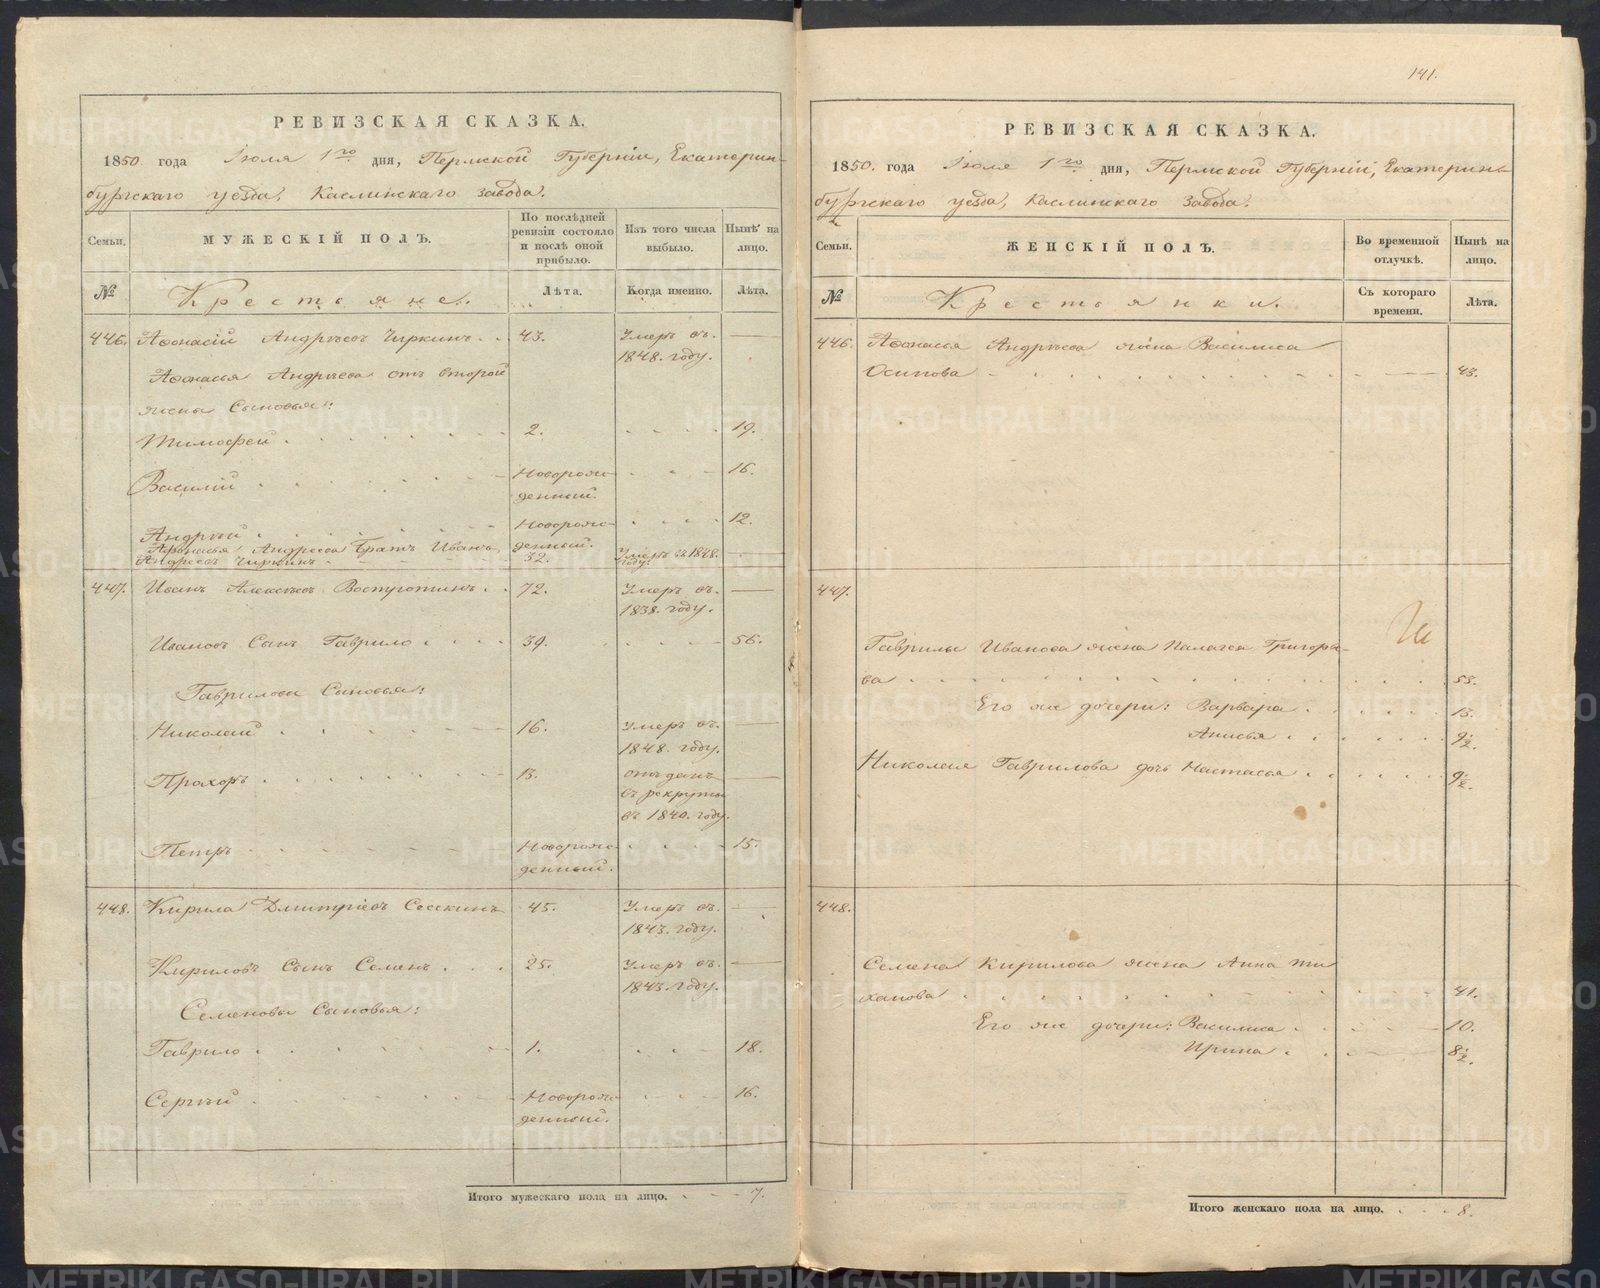 РЕВИЗСКАЯ СКАЗКА.
1850. года Іюля 1го дня, Пермской Губерніи, Екатерин-
бургскаго уезда, Каслинскаго завода.
Семьи. МУЖЕСКІЙ ПОЛЪ. По послѣдней ревизіи состояло и послѣ оной прибыло. Изъ того числа выбыло. Нынѣ на лицо.
№ Крестьяне. Лѣта. Когда именно. Лѣта.
446. Афонасій Андреевъ Чиркинъ 43. Умеръ въ 1848. году.
Афонасья Андрѣева отъ второй
жены Сыновья:
Тимофей 2. 19.
Василій Новорожденный. 16.
Андрей Новорожденный. 12.
Афонасья Андреева Братъ Иванъ
Андреевъ Чиркинъ 32. Умеръ въ 1848. году.
447. Иванъ Алексѣевъ 72. Умеръ въ 1838. году.
Ивановъ Сынъ Гаврило 39. 56.
Гавриловы Сыновья:
Николай 16. Умеръ въ 1848. году.
Прохоръ 13. отданъ въ рекруты въ 1840. году.
Петръ Новорожденный. 15.
448. Кирила Дмитріевъ 45. Умеръ въ 1843. году.
Кириловъ Сынъ Семенъ 25. Умеръ въ 1843. году.
Семеновы Сыновья:
Гаврило 1. 18.
Сергѣй Новорожденный. 16.
Итого мужескаго пола на лицо. 7.
141.
РЕВИЗСКАЯ СКАЗКА.
1850. года Іюля 1го дня, Пермской Губерніи, Екатерин-
бургскаго уезда, Каслинскаго завода.
Семьи. ЖЕНСКІЙ ПОЛЪ. Во временной отлучкѣ. Нынѣ на лицо.
№ Крестьянки. Съ котораго времени. Лѣта.
446. Афонасья Андрѣева жена Василиса
Осипова 43.
447.
Гаврилы Иванова жена Палагея Григорье-
ва 53.
Его же дочери: Варвара 13.
Анисья 9½.
Николая Гаврилова дочь Настасья 9½.
448.
Семена Кирилова жена Анна Ти
ханова 41.
Его же дочери: Василиса 10.
Ирина 8½.
Итого женскаго пола на лицо. 8.
METRIKI.GASO-URAL.RU